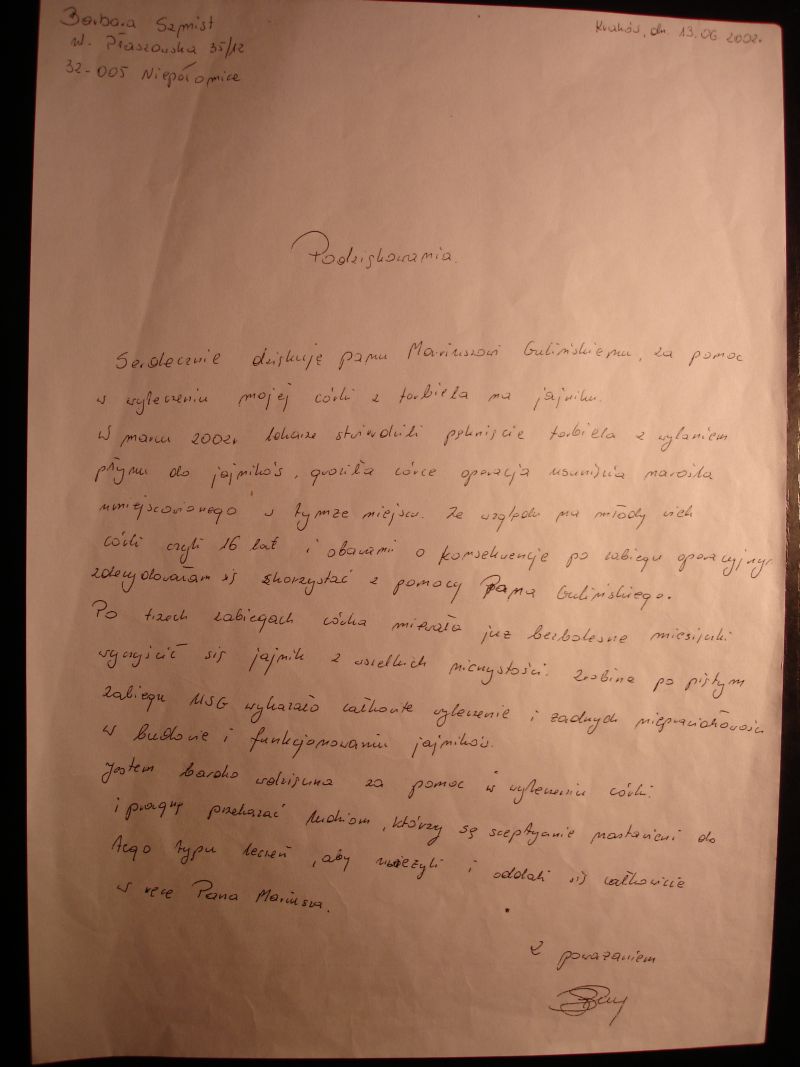 Barbara Szmist
ul. Płaszowska 35/12
32-005 Niepołomice
Kraków, dn. 13.06 2002r.
Podziękowania.
Serdecznie dziękuję panu Mariuszowi Gulińskiemu, za pomoc
w wyleczeniu mojej córki z torbiela na jajniku.
W marcu 2002r lekarze stwierdzili pęknięcie torbiela z wylaniem
płynu do jajników, groziła córce operacja usunięcia narośla
umiejscowionego w tymże miejscu. Ze względu na młody wiek
córki czyli 16 lat i obawami o konsekwencje po zabiegu operacyjnym
zdecydowałam się skorzystać z pomocy Pana Gulińskiego.
Po trzech zabiegach córka miewała już bezbolesne miesiączki
wyczyścić się jajnik z wszelkich nieczystości. Zrobine po piątym
zabiegu USG wykazało całkowite wyleczenie i żadnych nieprawidłowości
w budowie i funkcjonowaniu jajników.
Jestem bardzo wdzięczna za pomoc w wyleczeniu córki.
i pragnę przekazać ludziom, którzy są sceptycznie nastawieni do
tego typu leczeń, aby uwieżyli i oddali się całkowicie
w ręce Pana Mariusza.
Z poważaniem